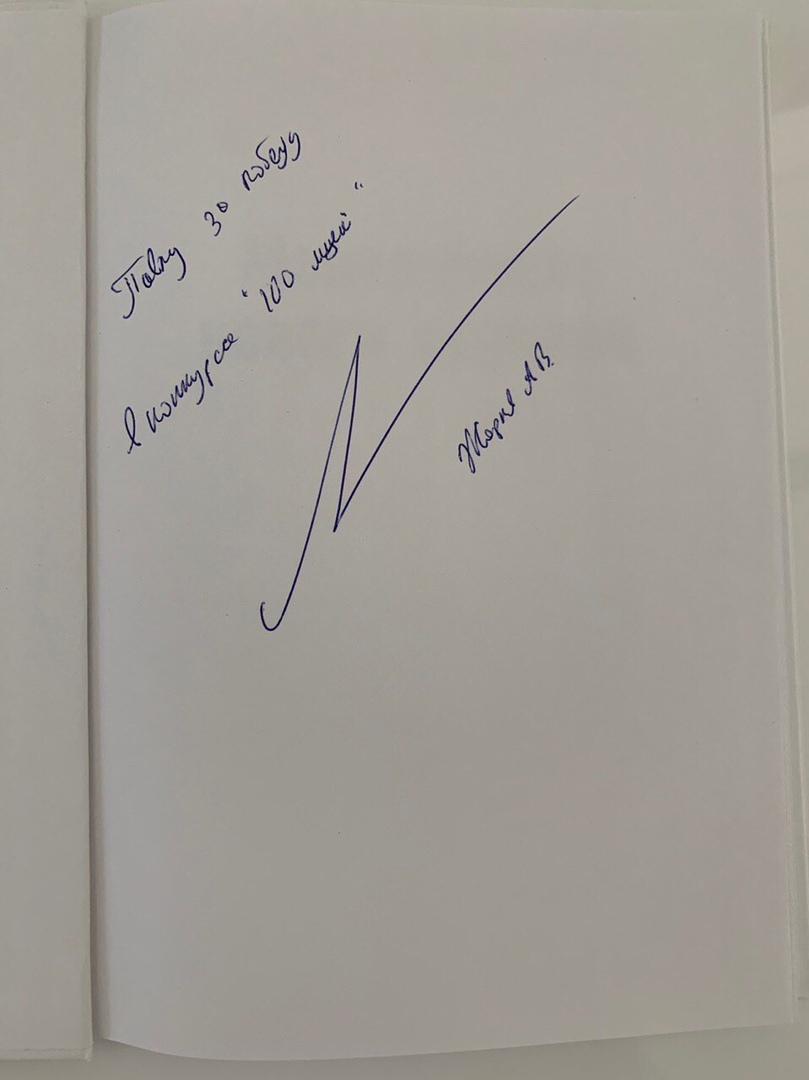 Павлу за победу
в конкурсе "100 идей"
А В